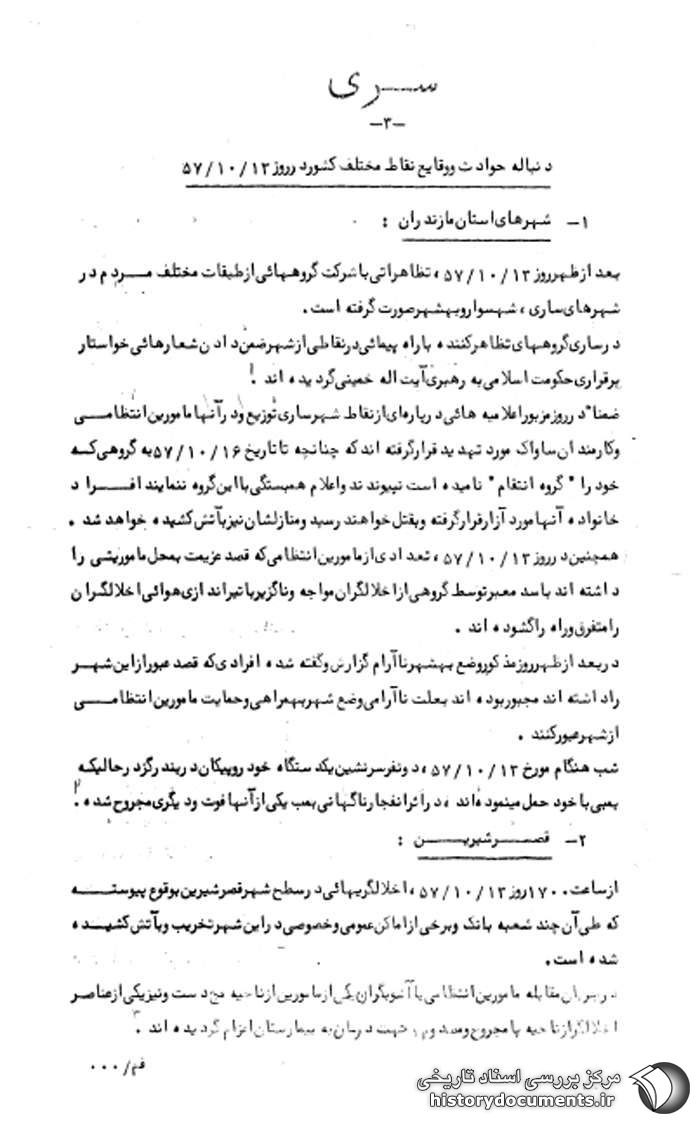 سری
-۳-
دنباله حوادث ووقایع نقاط مختلف کشوردرروز ۵۷/۱۰/۱۳
۱- شهرهای استان مازندران :
بعد ازظهرروز ۵۷/۱۰/۱۳، تظاهراتی باشرکت گروههائی ازطبقات مختلف مردم در
شهرهای ساری ، شهسواروبهشهرصورت گرفته است.
درساری گروههای تظاهرکننده باراه پیمائی درنقاطی ازشهرضمن دادن شعارهائی خواستار
برقراری حکومت اسلامی به رهبری آیت اله خمینی گردیده اند .
ضمنا" درروزمزبوراعلامیه هائی درپاره‌ای ازنقاط شهرساری توزیع ودرآنها مامورین انتظامی
وکارمندان ساواک مورد تهدید قرارگرفته اند که چنانچه تا تاریخ ۵۷/۱۰/۱۶ به گروهی که
خود را " گروه انتقام " نامیده است نپیوندند واعلام همبستگی بااین گروه ننمایند افراد
خانواده آنها مورد آزارقرارگرفته وبقتل خواهند رسید ومنازلشان نیزبآتش کشیده خواهد شد .
همچنین درروز ۵۷/۱۰/۱۳، تعدادی ازمامورین انتظامی که قصد عزیمت بمحل ماموریتی را
داشته اند باسد معبرتوسط گروهی ازاخلالگران مواجه وناگزیرباتیراندازی هوائی اخلالگران
رامتفرق وراه راگشوده اند .
دربعد ازظهرروزمذکوروضع بهشهرناآرام گزارش وگفته شده افرادی که قصد عبورازاین شهر
راداشته اند مجبوربوده اند بعلت ناآرامی وضع شهربهمراهی وحمایت مامورین انتظامی
ازشهرعبورکنند .
شب هنگام مورخ ۵۷/۱۰/۱۳، دونفرسرنشین یکدستگاه خود روپیکان دربندرگزدرحالیکه
بمبی باخود حمل مینموده‌اند دراثرانفجارناگهانی بمب یکی ازآنها فوت ودیگری مجروح شده .
۲- قصرشیرین :
ازساعت ۱۷۰۰ روز ۵۷/۱۰/۱۳، اخلالگریهائی درسطح شهرقصرشیرین بوقوع پیوسته
که طی آن چند شعبه بانک وبرخی ازاماکن عمومی وخصوصی دراین شهرتخریب وبآتش کشیده
شده است.
درجریان مقابله مامورین انتظامی باآشوبگران یکی ازمامورین ازناحیه مچ دست ونیزیکی ازعناصر
اخلالگرازناحیه پا مجروح ومصدوم و جهت درمان به بیمارستان اعزام گردیده اند .
قم/۰۰۰
مرکز بررسی اسناد تاریخی
historydocuments.ir